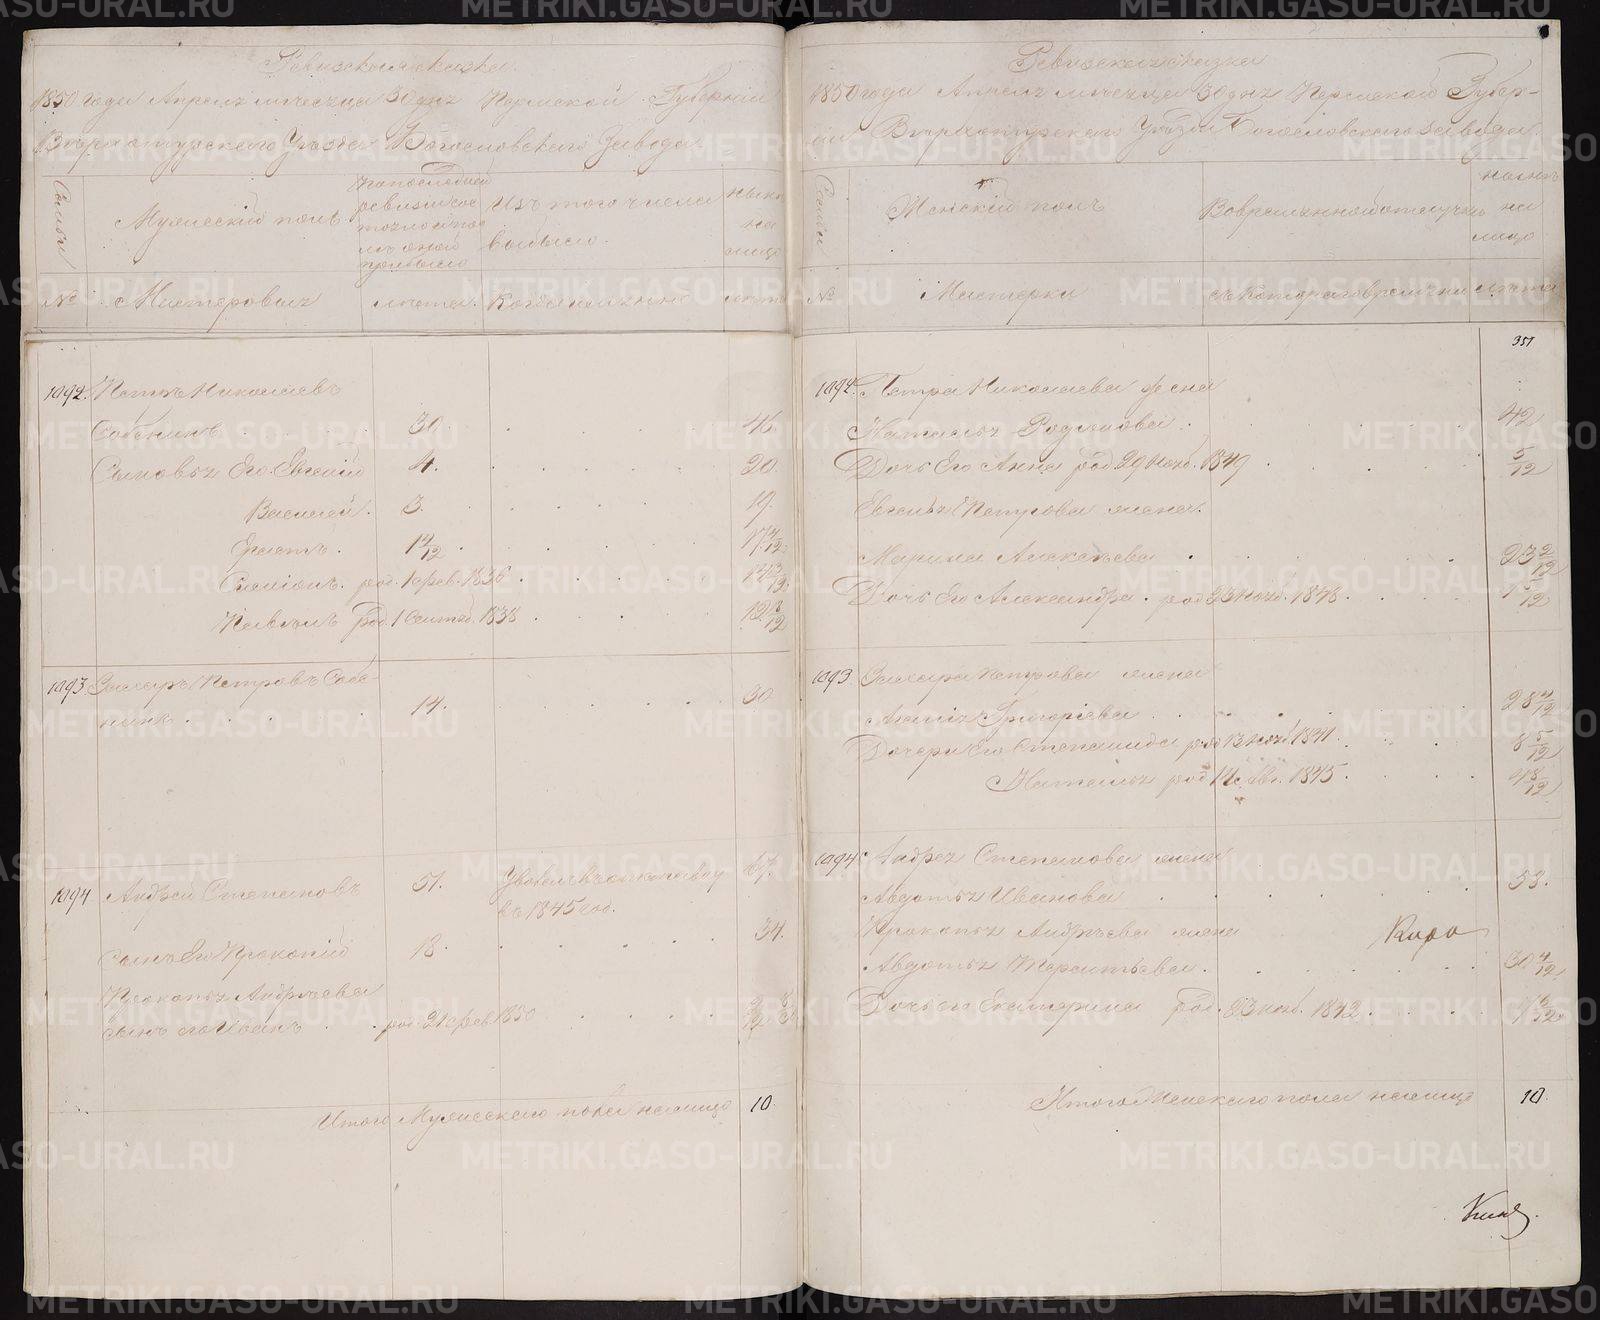 Ревизская сказка
1850 года Апреля месяца 30 дня Пермской Губернии
Верхотурского Уезда Богословского Завода.
Семьи
Мужеский полъ
По последней ревизии состояло и после оной прибыло
Изъ того числа выбыло.
Ныне на лицо
№
Мастеровые
лета.
Когда именно
лета
1092. Петръ Николаевъ
Собенинъ 30. 46.
Сыновья Его Евгений 4. 20.
Василий. 3. 19.
Ерастъ. 1 4/12
Симионъ. род. 1 Фев. 1836
Павелъ род. 1 Сентяб. 1838
1093 Захаръ Петровъ Собе-
нинъ 14. 30
1094 Андрей Степановъ 51. 67.
въ 1845 год.
34.
сынъ Его Прокопий 18.
Прокопья Андреева
сынъ его Иванъ род. 21 Фев. 1850 2/12
Итого Мужескаго пола налицо 10.
Ревизская сказка
1850 года Апреля месяца 30 дня Пермской Губер-
нии Верхотурского Уезда Богословского завода.
Семьи
Женский полъ
Во временной отлучке
Ныне на лицо
№
Мастерки
съ котораго времени
лета
351
1092. Петра Николаева жена
Наталья Родионова. 42
Дочь Его Анна род. 29 Нояб. 1849 5/12
Евгенья Петрова жена.
Марина Алексеева 23 2/12
Дочь Его Александра. род. 23 Нояб. 1848 1 5/12
1093. Захара Петрова жена
Григорьева 28 4/12
Дочери Его Степанида род. 13 нояб. 1841 8 5/12
Наталья род. 1845. 4 8/12
1094. Андрея Степанова жена
Авдотья Иванова 53.
Прокопья Андреева жена
Авдотья Терентьева. 30 4/12
Дочь его Екатерина род. 23 нояб. 1842
Итого Женскаго пола налицо 10.